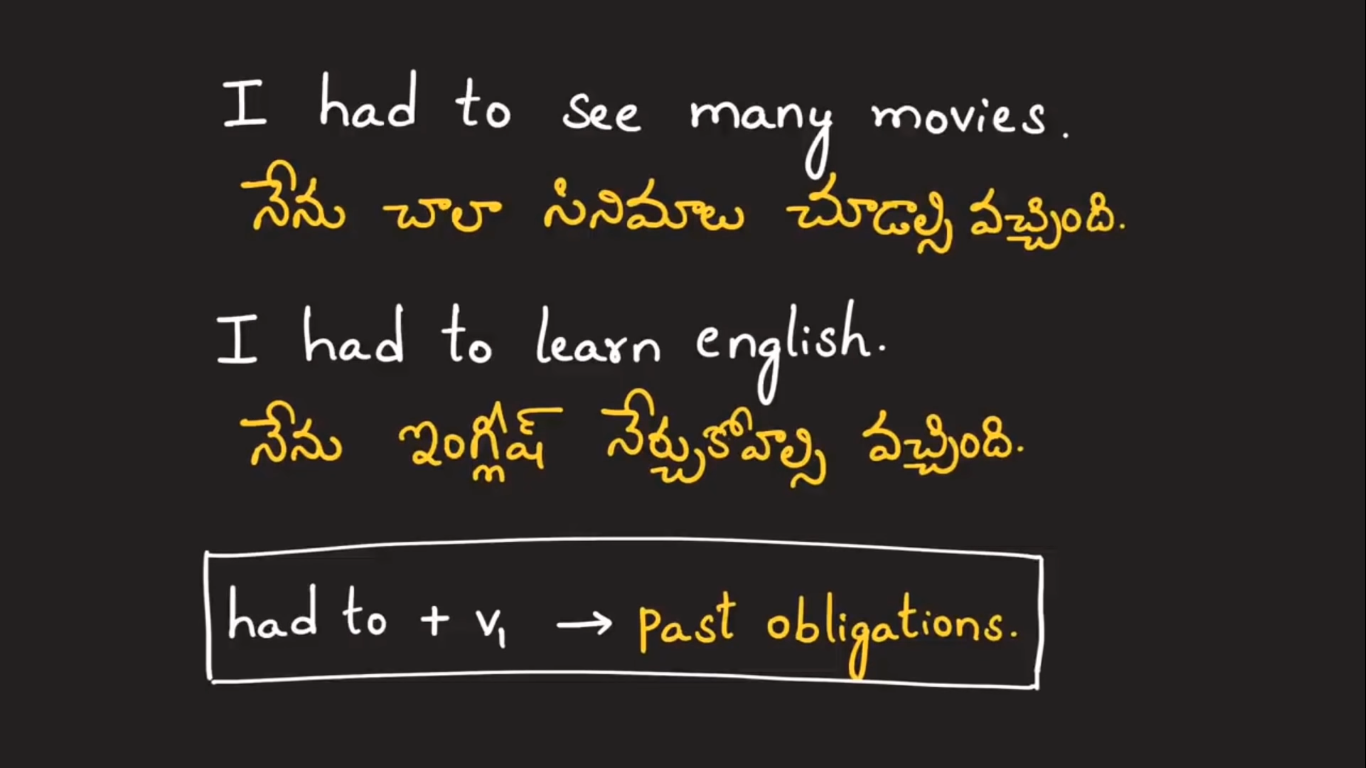 I had to see many movies.
నేను చాలా సినిమాలు చూడాల్సి వచ్చింది.
I had to learn english.
నేను ఇంగ్లీష్ నేర్చుకోవాల్సి వచ్చింది.
had to + v₁ → past obligations.